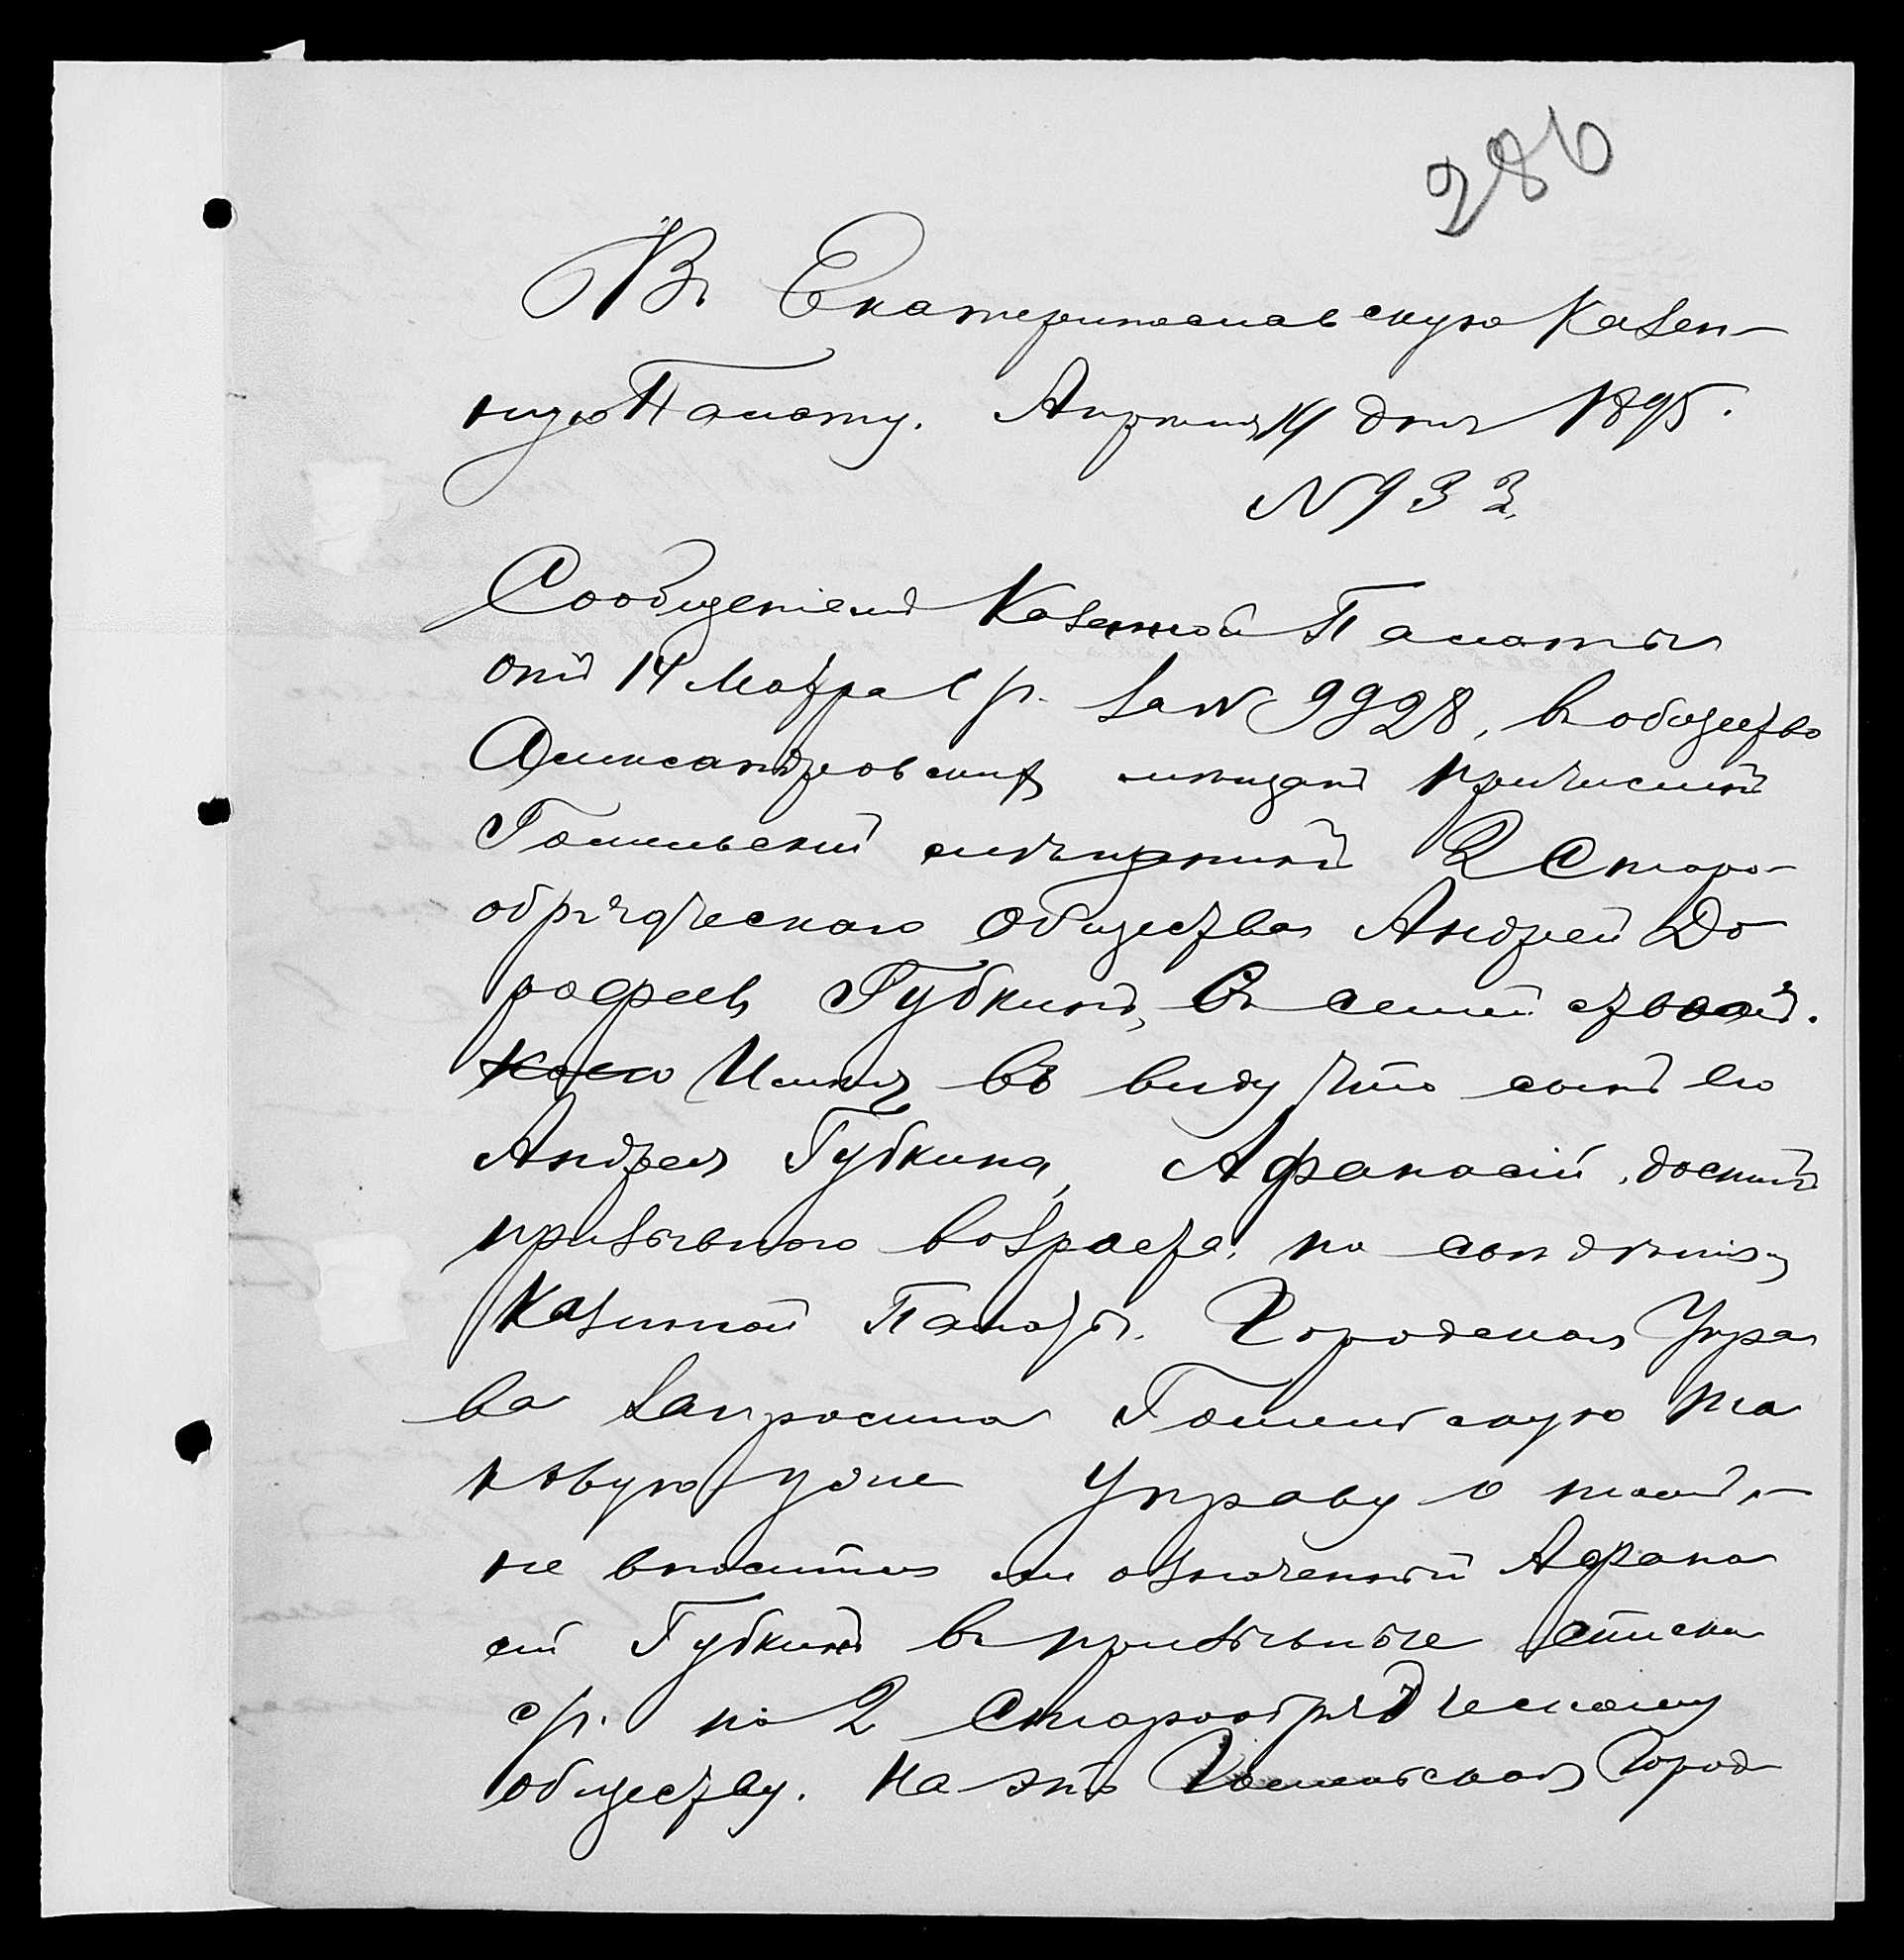 286
Въ Екатеринославскую Казен-
ную Палату. Апрѣля 14 дня 1895.
N 933
Сообщеніемъ Казенной Палаты
отъ 14 Марта с/г. за N 9928, въ общество
Александровскихъ мѣщанъ причисленъ
Гомельскій мѣщанинъ 2 Старо-
обрядческаго общества Андрей До
рофеевъ Губкинъ, съ семействомъ.
Имѣя въ виду что сынъ его
Андрея Губкина, Афанасій, достигъ
призывного возраста, по
Казенной Палаты. Городская Упра
ва запросила Гомельскую та
ковую же Управу о томъ,-
не вносится ли означенный Афана
сій Губкинъ въ призывные списки
с/г. по 2 Старообрядческому
обществу. На это Гомельская Город